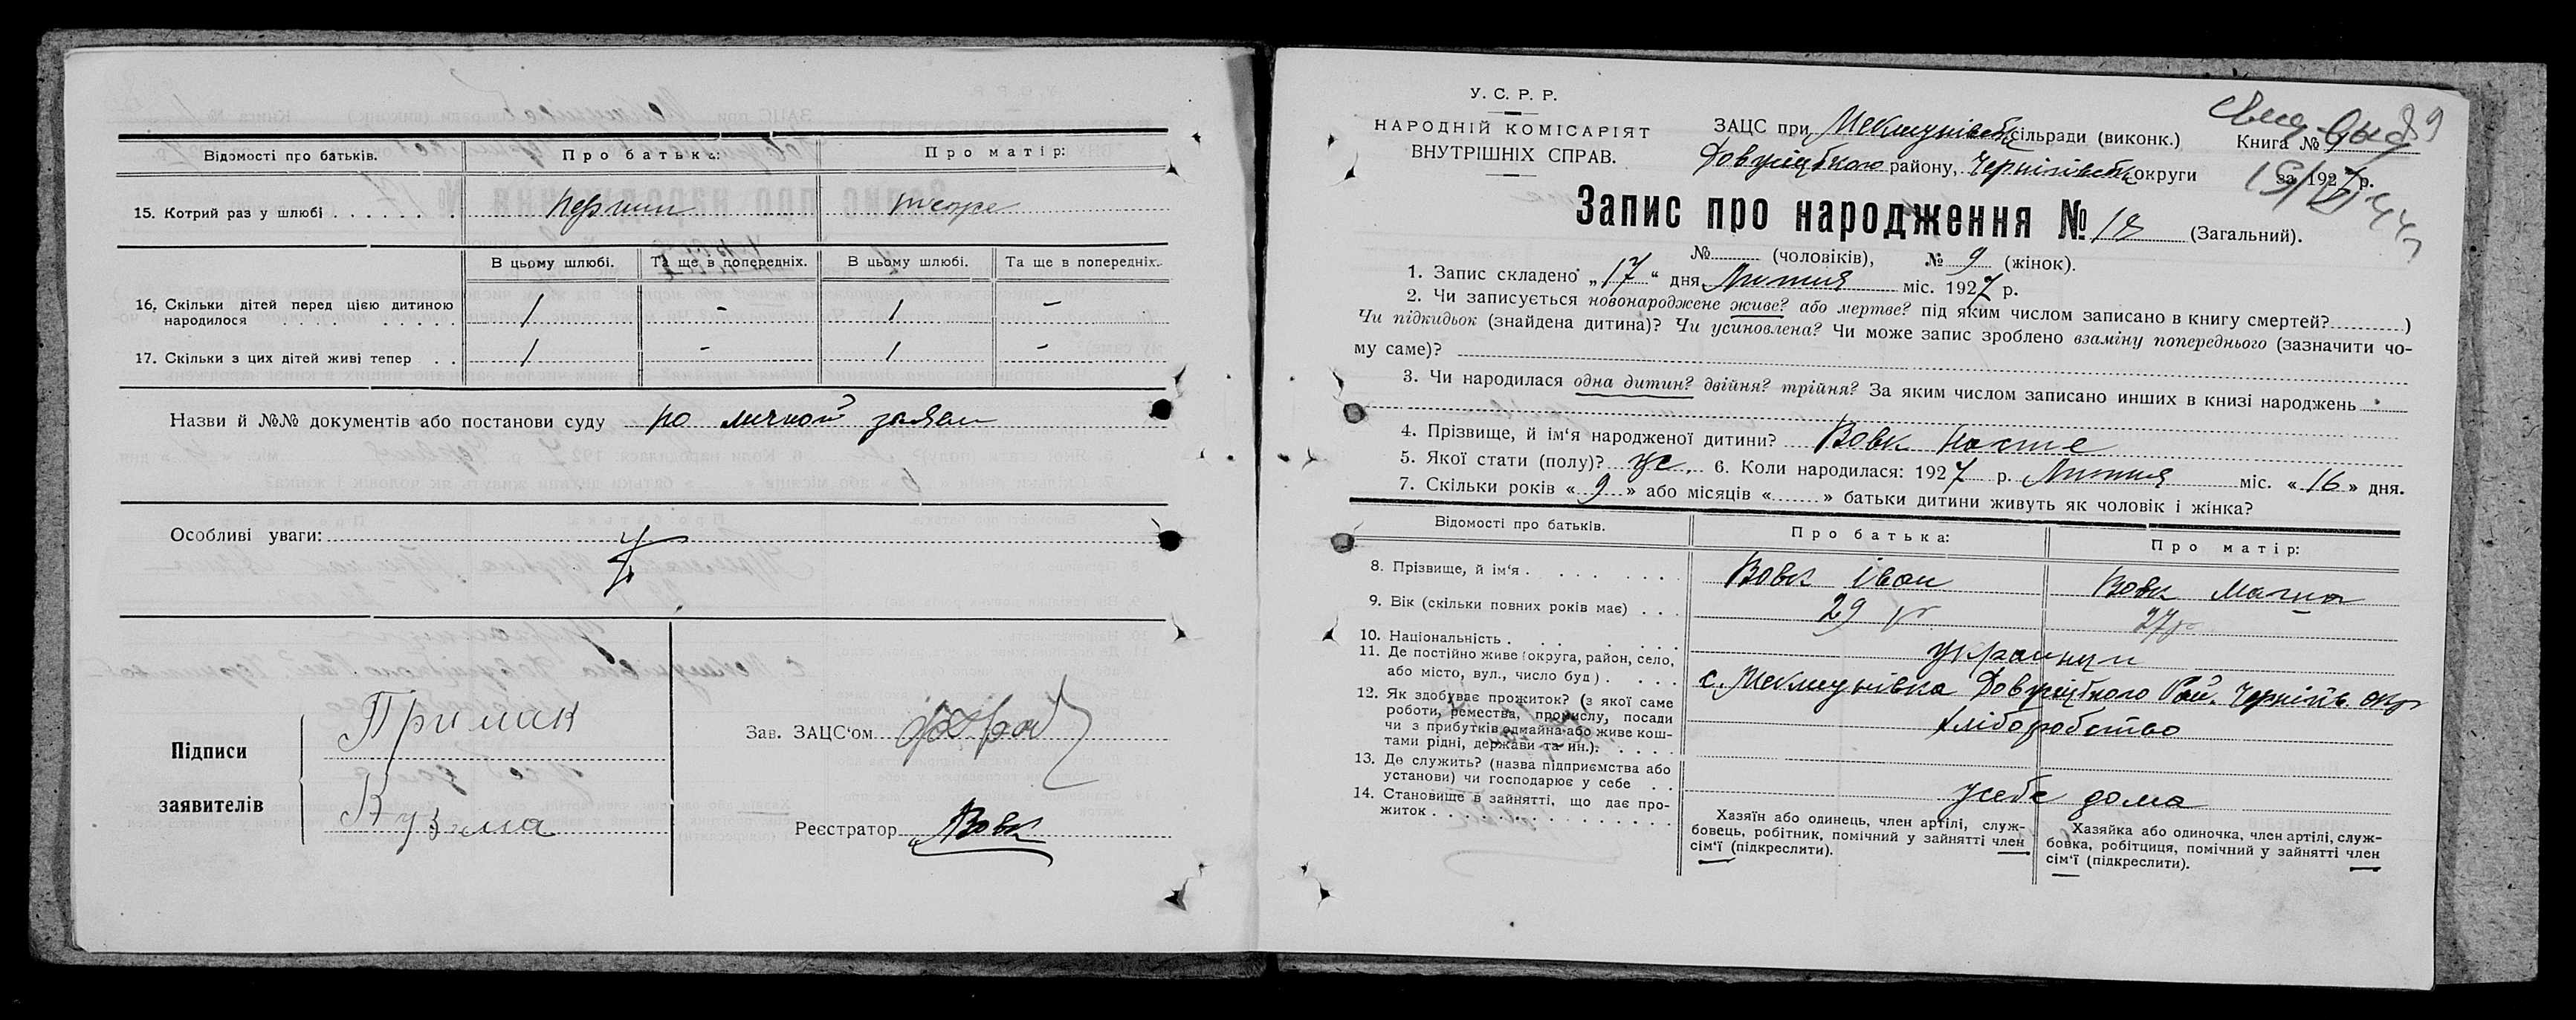 Відомості про батьків. Про батька: Про матір:
15. Котрий раз у шлюбі первий тоже
В цьому шлюбі. Та ще в попередніх. В цьому шлюбі. Та ще в попередніх.
16. Скільки дітей перед цією дитиною
народилося 1 - 1 -
17. Скільки з цих дітей живі тепер 1 - 1 -
Назви й №№ документів або постанови суду по личной заяви
Особливі уваги:
Підписи
заявителів
Примак
Кузьма
Зав. ЗАЦС'ом
Реєстратор Вовк
У. С. Р. Р.
НАРОДНІЙ КОМІСАРІЯТ
ВНУТРІШНІХ СПРАВ.
ЗАЦС при сільради (виконк.)
района, Чернігівськ округи
Книга №
за 1927 р.
Запис про народження № (Загальний).
№ (чоловіків), № 9 (жінок).
1. Запис складено „17“ дня Липня міс. 1927 р.
2. Чи записується новонароджене живе? або мертве? під яким числом записано в книгу смертей? )
Чи підкидьок (знайдена дитина)? Чи усиновлена? Чи може запис зроблено взаміну попереднього (зазначити чо-
му саме)?
3. Чи народилася одна дитин? двійня? трійня? За яким числом записано инших в книзі народжень
4. Прізвище, й ім'я народженої дитини? Вовк
5. Якої стати (полу)? ж. 6. Коли народилася: 1927 р. Липня міс. «16» дня.
7. Скільки років «9» або місяців « » батьки дитини живуть як чоловік і жінка?
Відомості про батьків. Про батька: Про матір:
8. Прізвище, й ім'я Вовк Іван Вовк
9. Вік (скільки повних років має) 29 р 27 р
10. Національність українці
11. Де постійно живе (округа, район, село,
або місто, вул., число буд) с.
12. Як здобуває прожиток? (з якої саме
роботи, ремества, промислу, посади
чи з прибутків одмайна або живе кош-
тами рідні, держави та ин.). хліборобство
13. Де служить? (назва підприємства або
установи) чи господарює у себе у себе дома
14. Становище в зайнятті, що дає про-
житок
Хазяїн або одинець, член артілі, служ-
бовець, робітник, помічний у зайнятті член
сім'ї (підкреслити).
Хазяйка або одиночка, член артілі, служ-
бовка, робітниця, помічний у зайнятті член
сім'ї (підкреслити).